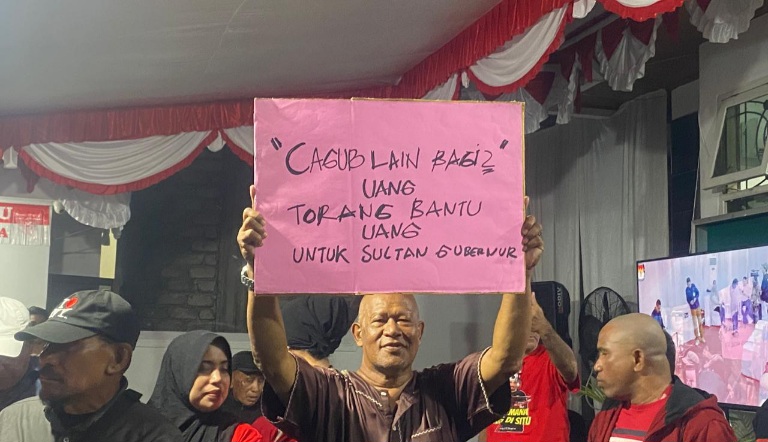 "CAGUB LAIN BAGI2"
UANG
TORANG BANTU
UANG
UNTUK SULTAN GUBERNUR
DI SITU